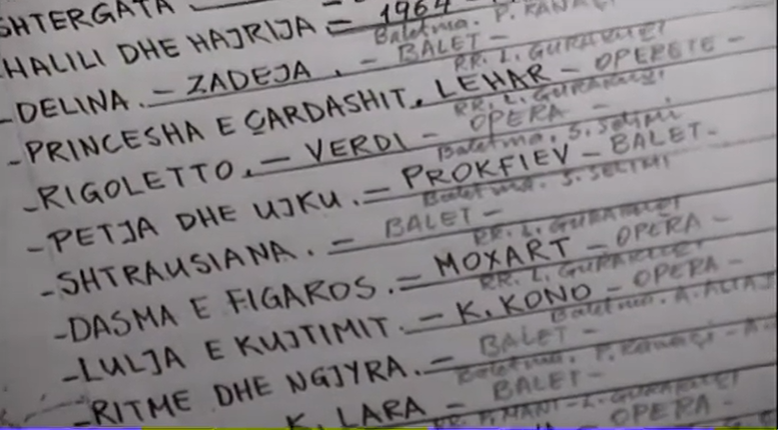 SHTERGATA
HALILI DHE HAJRIJA = 1964 -
Baletma. P. KANAÇI
-DELINA. - ZADEJA. - BALET -
RR. L. GURAKUQI
-PRINCESHA E ÇARDASHIT. LEHAR - OPERETE -
RR. L. GURAKUQI
-RIGOLETTO. - VERDI - OPERA -
Baletma. S. Selimi
-PETJA DHE UJKU. = PROKFIEV - BALET -
Baletma. S. SELIMI
-SHTRAUSIANA. = BALET -
RR. L. GURAKUQI
-DASMA E FIGAROS. = MOXART - OPERA -
RR. L. GURAKUQI
-LULJA E KUJTIMIT. - K. KONO - OPERA -
Baletma. A. ALIAJ
-RITME DHE NGJYRA. = BALET -
Baletma. P. Kanaçi - A.
K. LARA - BALET -
RR. L. GURAKUQI
OPERA -